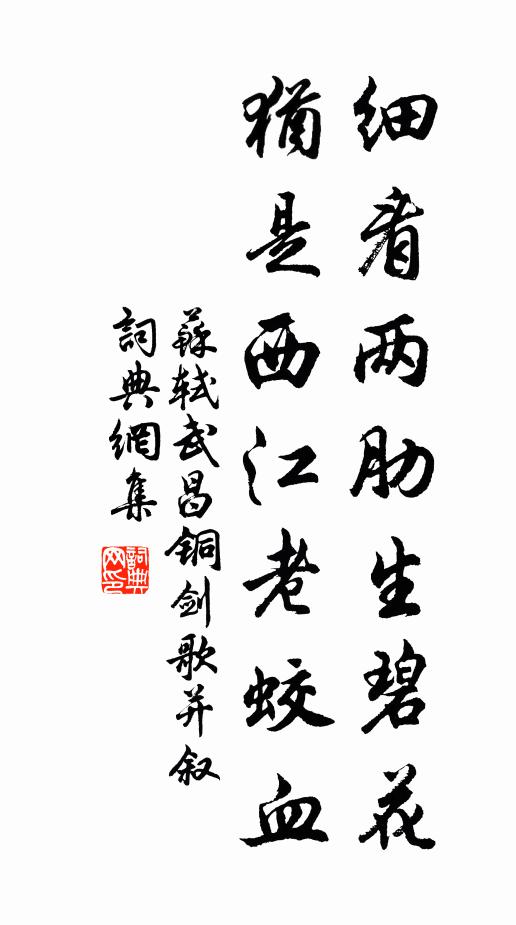 细看两肋生碧花
犹是西江老蛟血
蘇軾武昌铜剑歌并叙
詞典網集
詞典网印